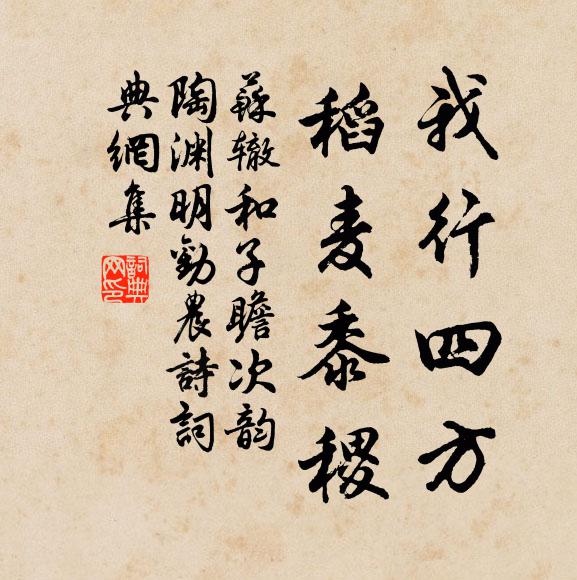 我行四方
稻麦黍稷
蘇辙和子瞻次韵
陶渊明勸農詩詞
典網集
詞典
网印